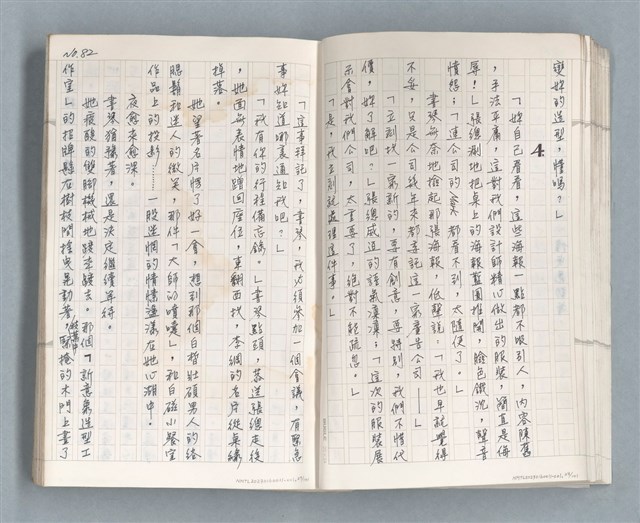 變妳的造型，懂嗎？」
4
「妳自己看看，這些海報一點都不吸引人，內容陳舊
，手法平庸，這對我們設計師精心做出的服裝，簡直是侮
辱！」張總潮地把桌上的海報藍圖推開，臉色鐵沉，聲音
憤怒：「連公司的 都看不到，太隨便了。」
李琴每奈地撿起那張海報，低聲說：「我也早就覺得
不妥，只是公司幾年來都委託這一家廣告公司——」
「立刻找一家新的，要有創意，要特別，我們不惜代
價，妳了解吧？」張總威迫的語氣凜凜：「這次的服裝展
示會對我們公司，太重要了，絕對不能疏忽。」
「是，我立刻就處理這件事。」
「這事拜託了，李琴，我必須參加一個會議，有緊急
事妳知道哪裏通知我吧？」
「我有你的行程備忘錄。」李琴點頭，恭送張總走後
，她面每表情地蹭回座位，東翻西找，李綱的名片從桌緣
掉落。
她望著名片愣了好一會，想到那個白皙壯碩男人的絡
腮鬍和迷人的微笑，那件「大師的噴嚏」，和白磁小器宝
作品上的投影……一股迷惘的情愫盪漾在她心湖中。
夜愈來愈深。
李琴猶豫著，還是決定繼續等待。
她痠酸的雙腳機械地踱來踱去。那個「新意象造型工
作室」的招牌懸在樹枝間搖曳晃動著， 掩的木門上畫了
No. 82